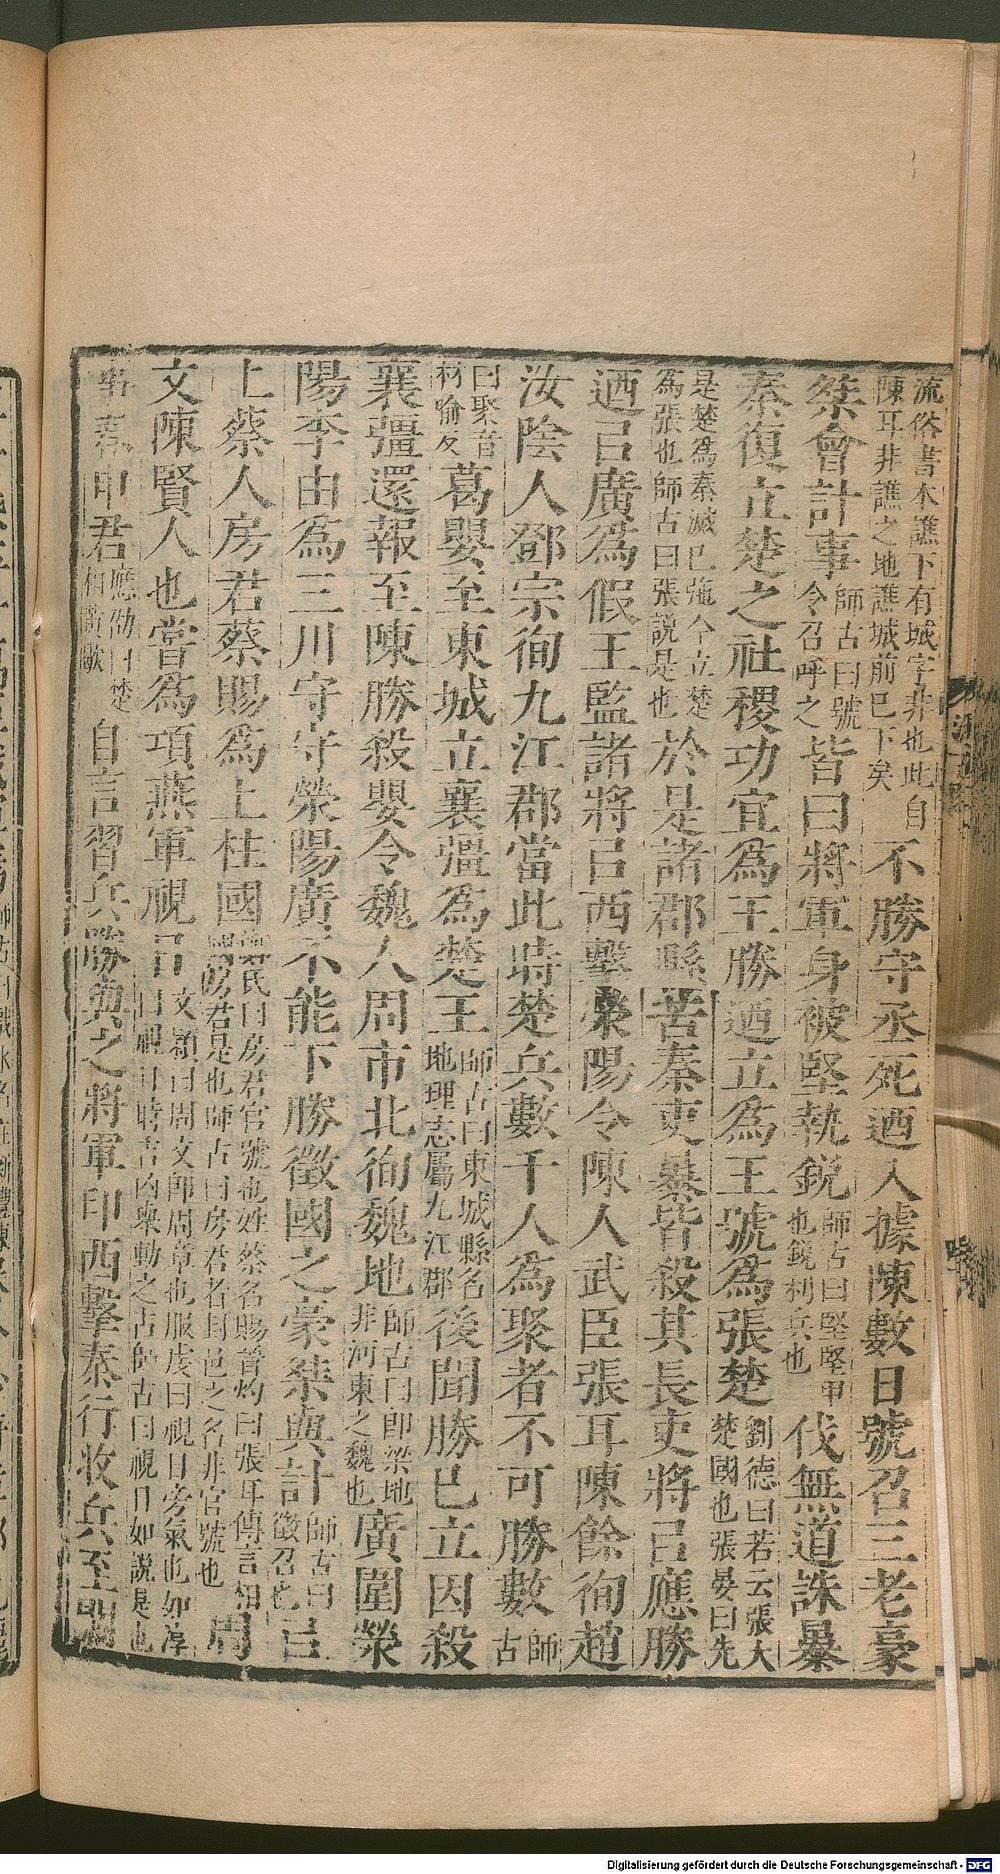 流俗書本譙下有城字非也此自陳耳非譙之地譙城前已下矣不勝守丞死迺入據陳數日號召三老豪
桀會計事師古曰號令召呼之皆曰將軍身被堅執銳師古曰堅堅甲也銳利兵也伐無道誅暴
秦復立楚之社稷功宜爲王勝迺立爲王號爲張楚劉德曰若云張大楚國也張晏曰先
是楚爲秦滅已弛今立楚爲張也師古曰張說是也於是諸郡縣苦秦吏暴皆殺其長吏將㠯應勝
迺㠯廣爲假王監諸將㠯西擊滎陽令陳人武臣張耳陳餘徇趙
汝陰人鄧宗徇九江郡當此時楚兵數千人爲聚者不可勝數師古
曰聚音材喻反葛嬰至東城立襄彊爲楚王師古曰東城縣名地理志屬九江郡後聞勝已立因殺
襄彊還報至陳勝殺嬰令魏人周市北徇魏地師古曰卽梁地非河東之魏也廣圍滎
陽李由爲三川守守滎陽廣不能下勝徵國之豪桀與計師古曰徵召也㠯
上蔡人房君蔡賜爲上柱國臣瓚曰房君官號也姓蔡名賜晉灼曰張耳傳言相國房君是也師古曰房君者封邑之名非官號也周
文陳賢人也嘗爲項燕軍視日文穎曰周文卽周章也服虔曰視日旁氣也如淳曰視日時吉凶舉動之占師古曰視日如說是也
事春申君應劭曰楚相黃歇自言習兵勝與之將軍印西擊秦行收兵至關
Digitalisierung gefördert durch die Deutsche Forschungsgemeinschaft - DFG